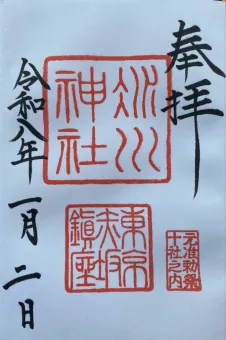 奉拝
氷川
神社
東京
赤坂
鎮座
元准勅祭
十社之内
令和八年
一月二日